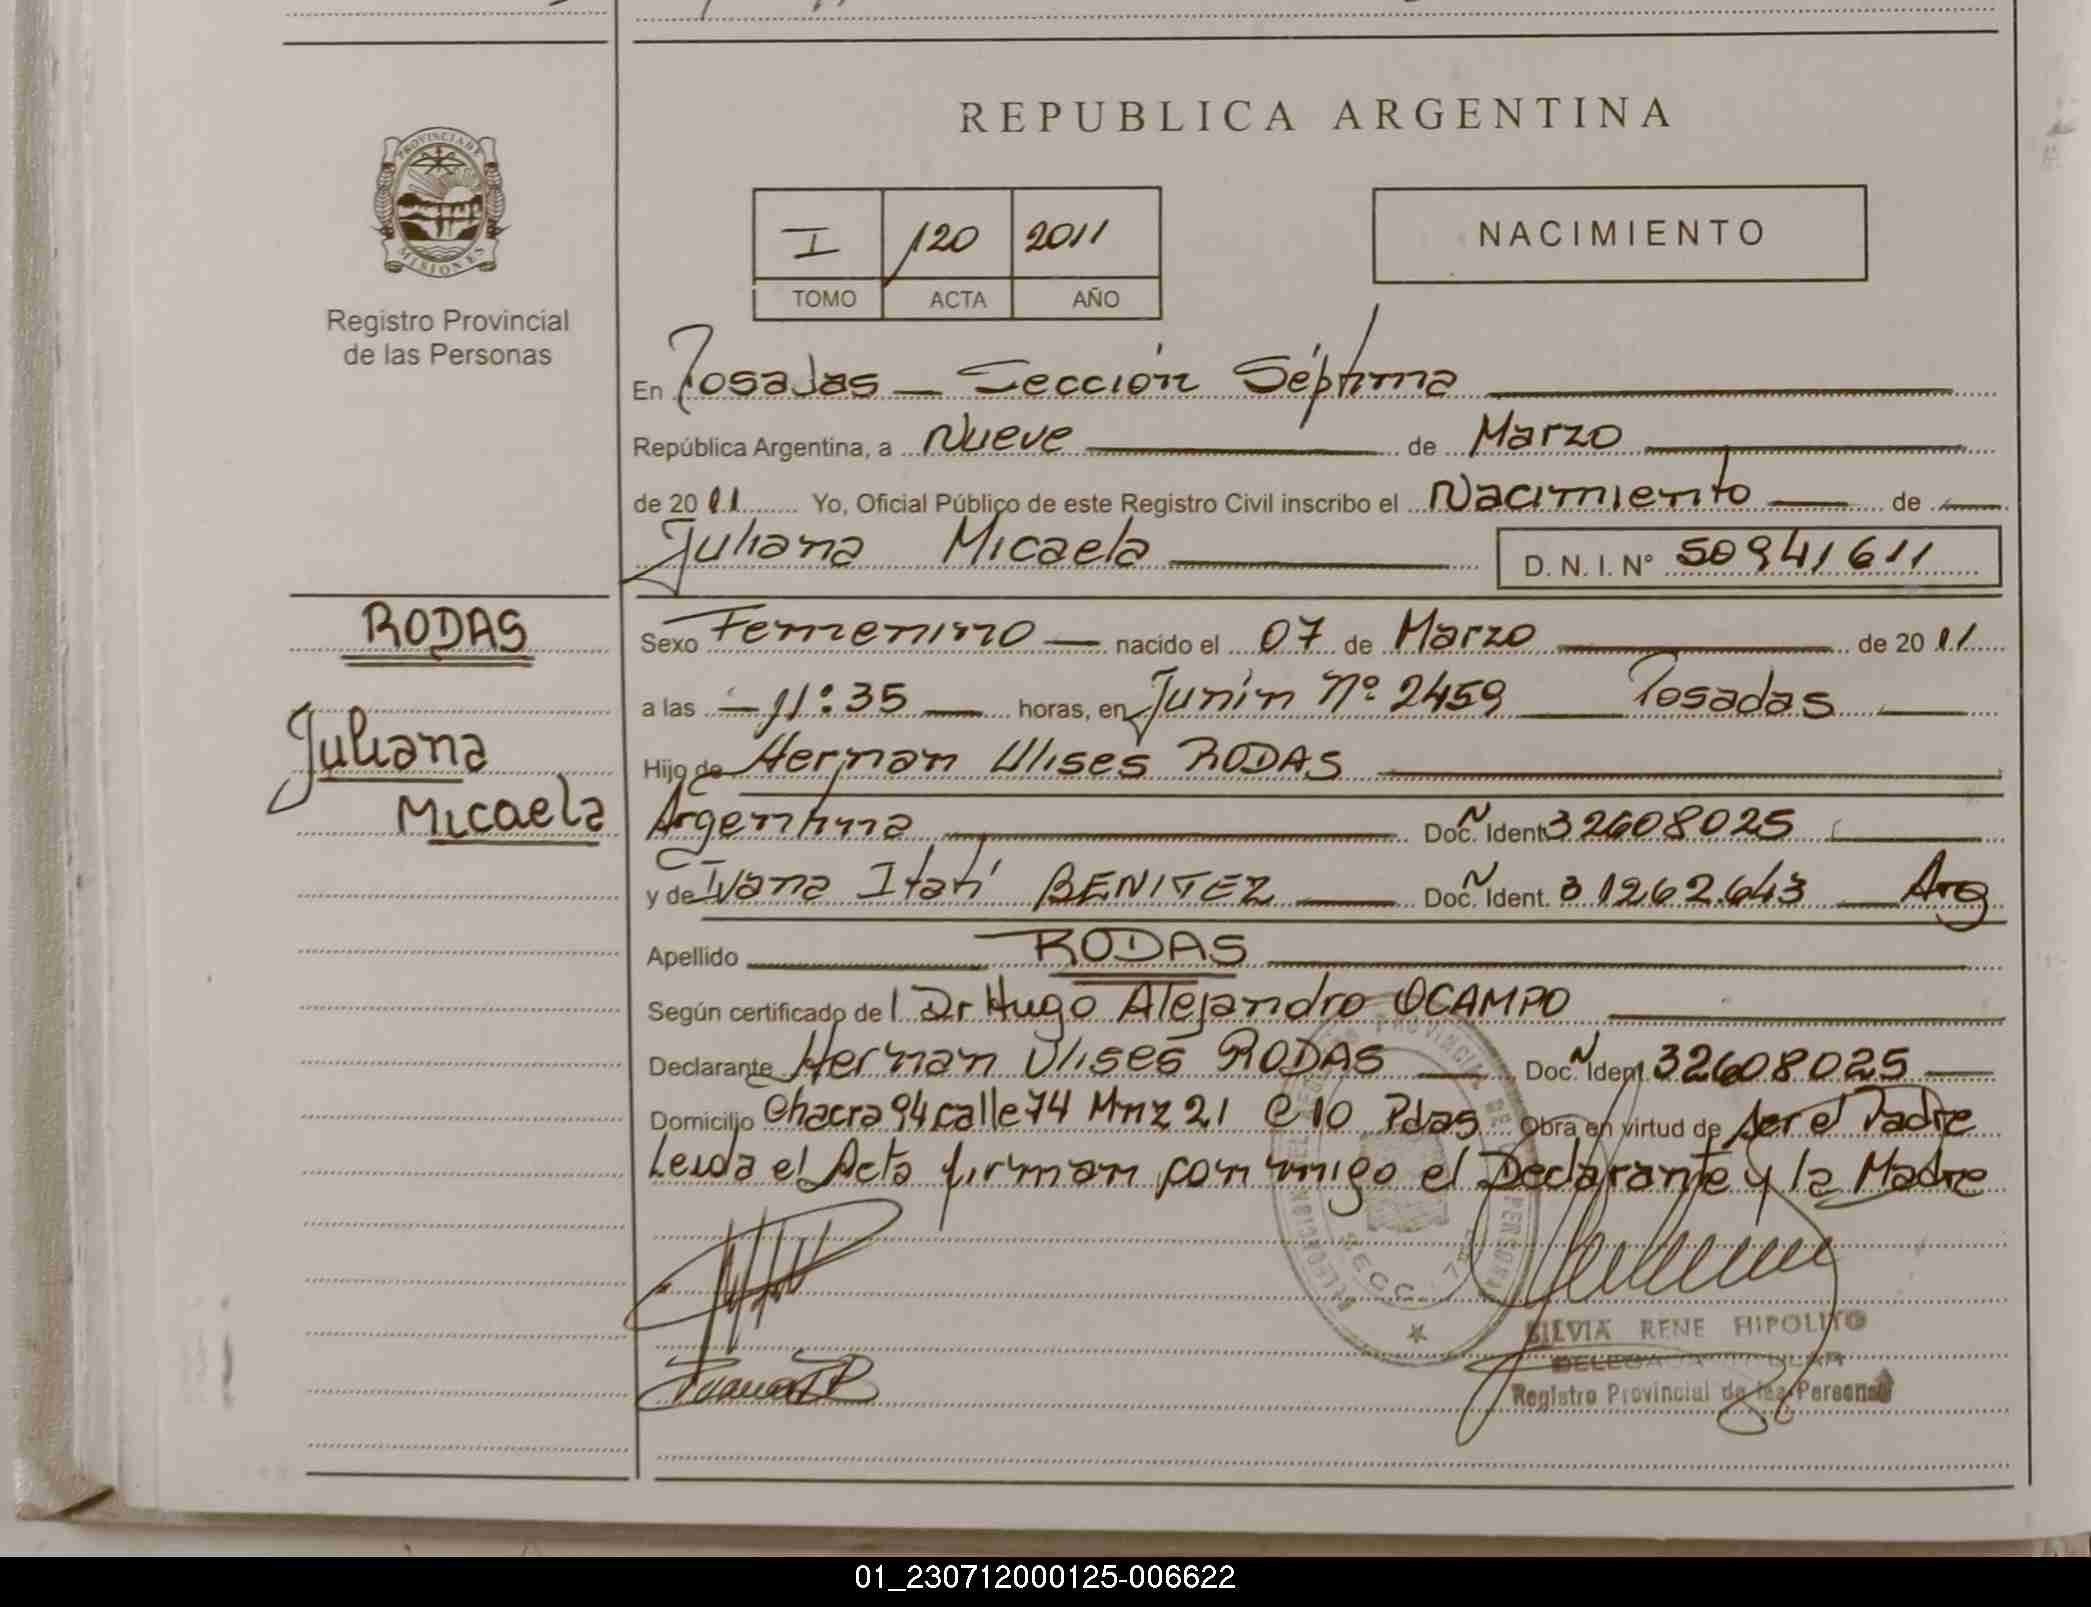 REPUBLICA ARGENTINA
PROVINCIA DE
MISIONES
Registro Provincial
de las Personas
I 120 2011
TOMO ACTA AÑO
NACIMIENTO
En Posadas — Sección Séptima
República Argentina, a Nueve de Marzo
de 2011 Yo, Oficial Público de este Registro Civil inscribo el Nacimiento — de —
Juliana Micaela
D. N. I. N° 50941611
RODAS
Juliana
Micaela
Sexo Femenino — nacido el 07 de Marzo de 2011
a las — 11:35 — horas, en Junín Nº 2459 — Posadas —
Hijo de Hernan Ulises RODAS
Argentina Doc. Ident. 32608025
y de Ivana Itatí BENITEZ — Doc. Ident. 31262.643 — Arg
Apellido RODAS
Según certificado de l Dr Hugo Alejandro OCAMPO
Declarante Hernan Ulises RODAS — Doc. Ident. 32608025 —
Domicilio Chacra 94 calle 74 Mnz 21 C 10 Pdas Obra en virtud de ser el Padre
Leida el Acta firman conmigo el Declarante y la Madre
SECC. 7
SILVIA RENE HIPOLITO
Registro Provincial de las Personas
01_230712000125-006622